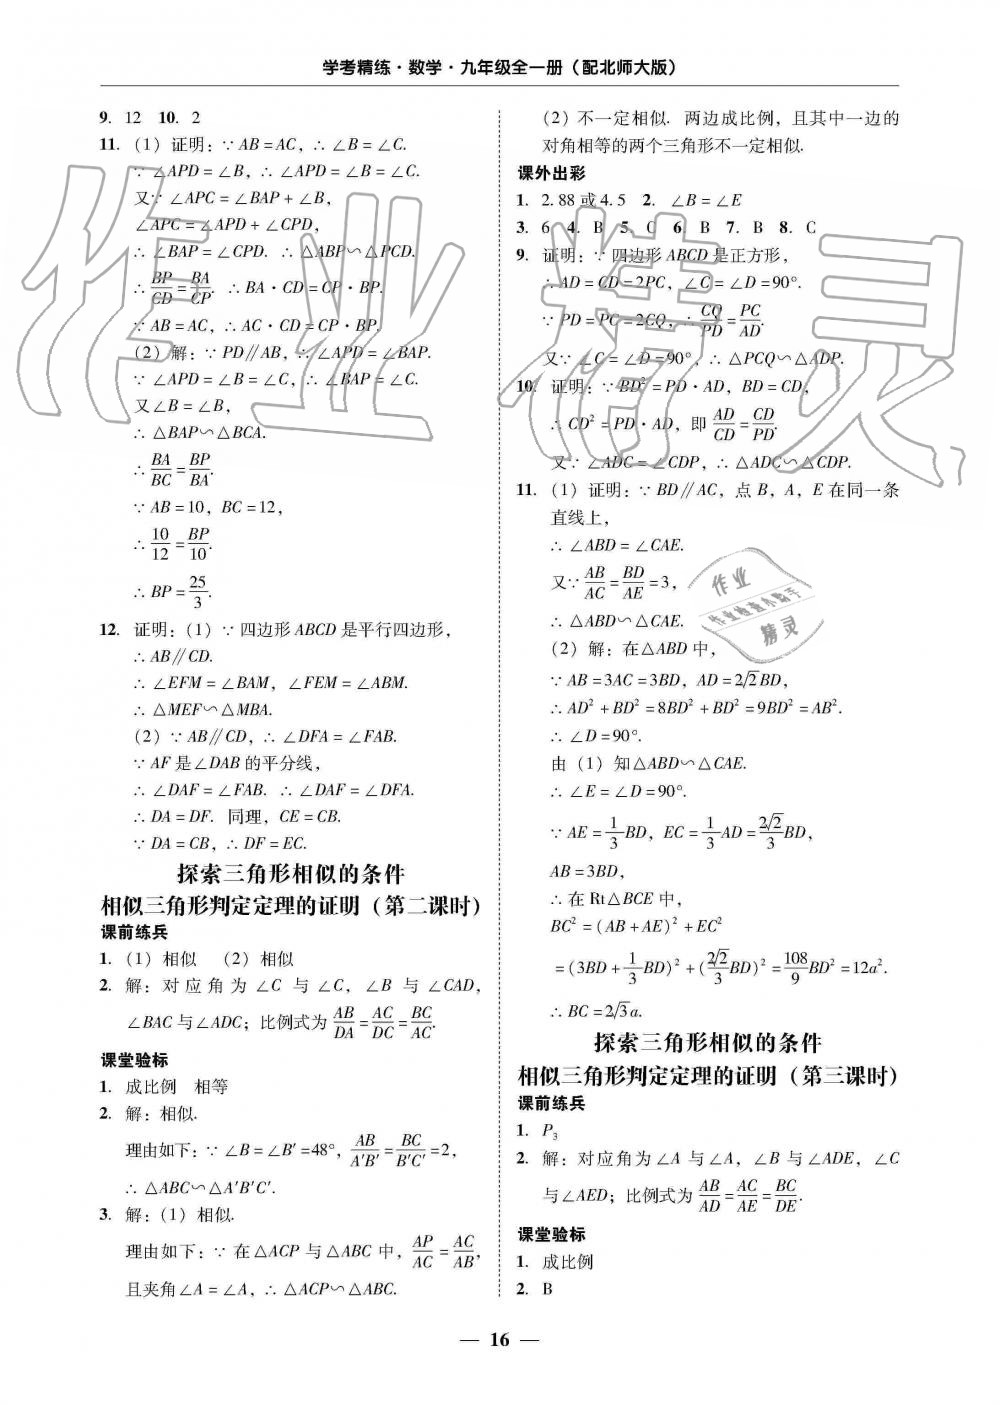 学考精练·数学·九年级全一册（配北师大版）
9. 12 10. 2
11. (1) 证明：∵ AB=AC，∴ ∠B=∠C.
∵ ∠APD=∠B，∴ ∠APD=∠B=∠C.
又∵ ∠APC=∠BAP+∠B，
∠APC=∠APD+∠CPD，
∴ ∠BAP=∠CPD. ∴ △ABP∽△PCD.
∴ BP/CD=BA/CP. ∴ BA·CD=CP·BP.
∵ AB=AC，∴ AC·CD=CP·BP.
(2) 解：∵ PD∥AB，∴ ∠APD=∠BAP.
∵ ∠APD=∠B=∠C，∴ ∠BAP=∠C.
又∠B=∠B，
∴ △BAP∽△BCA.
∴ BA/BC=BP/BA.
∵ AB=10，BC=12，
∴ 10/12=BP/10.
∴ BP=25/3.
12. 证明：(1) ∵ 四边形ABCD是平行四边形，
∴ AB∥CD.
∴ ∠EFM=∠BAM，∠FEM=∠ABM.
∴ △MEF∽△MBA.
(2) ∵ AB∥CD，∴ ∠DFA=∠FAB.
∵ AF是∠DAB的平分线，
∴ ∠DAF=∠FAB. ∴ ∠DAF=∠DFA.
∴ DA=DF. 同理，CE=CB.
∵ DA=CB，∴ DF=EC.
探索三角形相似的条件
相似三角形判定定理的证明（第二课时）
课前练兵
1. (1) 相似 (2) 相似
2. 解：对应角为∠C与∠C，∠B与∠CAD，
∠BAC与∠ADC；比例式为AB/DA=AC/DC=BC/AC.
课堂验标
1. 成比例 相等
2. 解：相似.
理由如下：∵ ∠B=∠B′=48°，AB/A′B′=BC/B′C′=2，
∴ △ABC∽△A′B′C′.
3. 解：(1) 相似.
理由如下：∵ 在△ACP与△ABC中，AP/AC=AC/AB，
且夹角∠A=∠A，∴ △ACP∽△ABC.
(2) 不一定相似. 两边成比例，且其中一边的
对角相等的两个三角形不一定相似.
课外出彩
1. 2.88或4.5 2. ∠B=∠E
3. 6 4. B 5. C 6. B 7. B 8. C
9. 证明：∵ 四边形ABCD是正方形，
∴ AD=CD=2PC，∠C=∠D=90°.
∵ PD=PC=2CQ，∴ CQ/PD=PC/AD.
又∵ ∠C=∠D=90°，∴ △PCQ∽△ADP.
10. 证明：∵ BD²=PD·AD，BD=CD，
∴ CD²=PD·AD，即AD/CD=CD/PD.
又∵ ∠ADC=∠CDP，∴ △ADC∽△CDP.
11. (1) 证明：∵ BD∥AC，点B，A，E在同一条
直线上，
∴ ∠ABD=∠CAE.
又∵ AB/AC=BD/AE=3，
∴ △ABD∽△CAE.
(2) 解：在△ABD中，
∵ AB=3AC=3BD，AD=2√2BD，
∴ AD²+BD²=8BD²+BD²=9BD²=AB².
∴ ∠D=90°.
由(1)知△ABD∽△CAE.
∴ ∠E=∠D=90°.
∵ AE=1/3BD，EC=1/3AD=2√2/3BD，
AB=3BD，
∴ 在Rt△BCE中，
BC²=(AB+AE)²+EC²
=(3BD+1/3BD)²+(2√2/3BD)²=108/9BD²=12a².
∴ BC=2√3a.
探索三角形相似的条件
相似三角形判定定理的证明（第三课时）
课前练兵
1. P₃
2. 解：对应角为∠A与∠A，∠B与∠ADE，∠C
与∠AED；比例式为AB/AD=AC/AE=BC/DE.
课堂验标
1. 成比例
2. B
— 16 —
作业精灵
作业
作业检查小助手
精灵